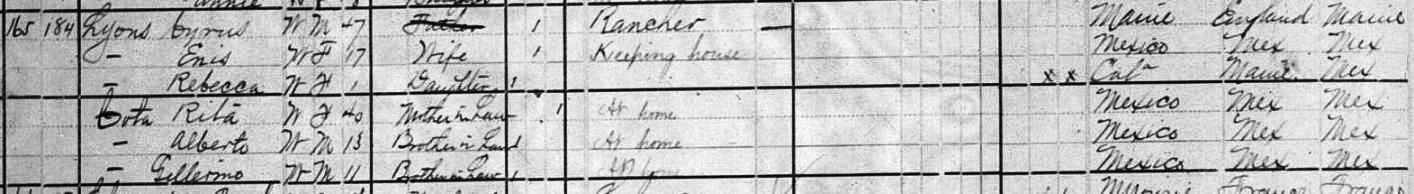 165 184 Lyons Cyrus W M 47 Father 1 Rancher — Maine England Maine
— Enis W F 17 Wife 1 Keeping house Mexico Mex Mex
— Rebecca W F 1 Daughter 1 x x Cal Maine Mex
Cota Rita W F 40 Mother in Law 1 At home Mexico Mex Mex
— Alberto W M 13 Brother in Law 1 At home Mexico Mex Mex
— Gillermo W M 11 Brother in Law 1 At home Mexico Mex Mex